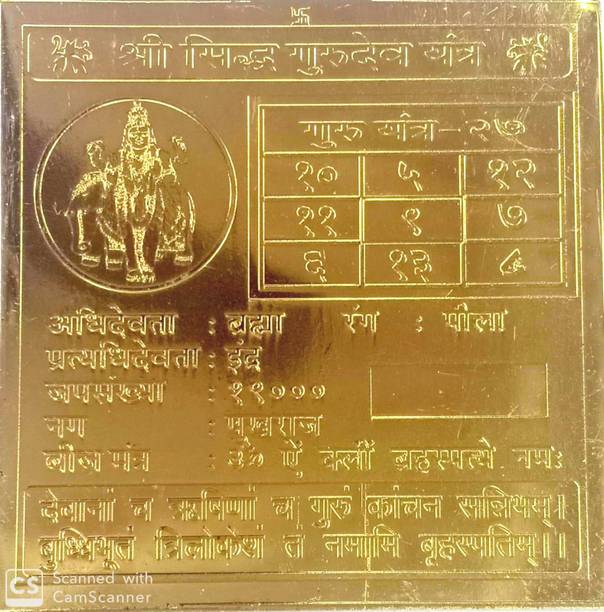 श्री सिद्ध गुरुदेव यंत्र
गुरु यंत्र-२७
१० ५ १२
११ ९ ७
६ १३ ८
अधिदेवता : ब्रह्मा रंग : पीला
प्रत्यधिदेवता : इंद्र
जपसंख्या : १९०००
नग : पुखराज
बीज मंत्र : ॐ ऐं क्लीं ब्रहस्पत्ये नमः
देवानां च ऋषिणां च गुरुं कांचन सन्निभम्।
बुध्धिभूतं त्रिलोकेशं तं नमामि बृहस्पतिम्।।
CS Scanned with
CamScanner